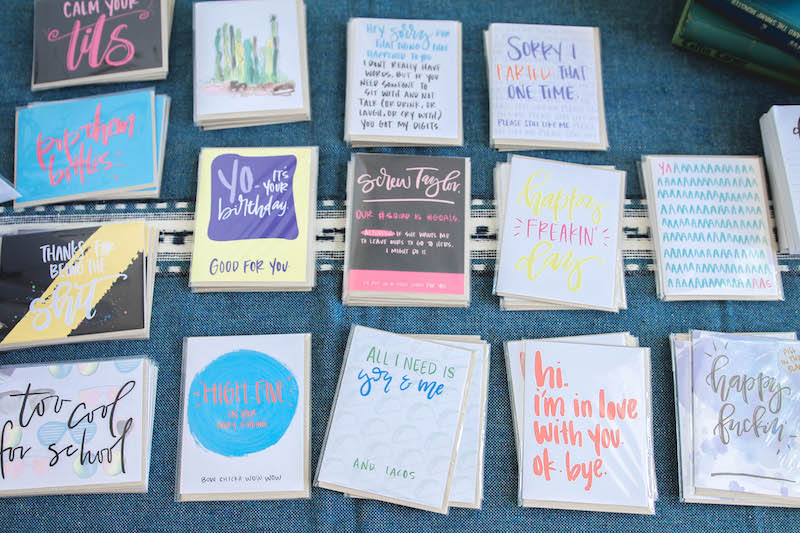 CALM YOUR
tits
HEY sorry FOR
THAT THING THAT
HAPPENED TO YOU
I DON'T REALLY HAVE
WORDS, BUT IF YOU
NEED SOMEONE TO
SIT WITH AND NOT
TALK (OR DRINK, OR
LAUGH, OR CRY WITH)
YOU GOT MY DIGITS.
SORRY I
FARTED THAT
ONE TIME.
PLEASE STILL LIKE ME
pop them
bottles.
YO-
IT'S
YOUR
birthday.
GOOD FOR YOU.
Screw Taylor.
OUR #SQUAD IS #GOALS.
IF SHE WANTS ME
TO LEAVE OURS TO GO TO HERS,
I MIGHT DO IT
happy
FREAKIN'
day
YA
AS
THANKS FOR
BEING THE
shit
too cool
for school
HIGH FIVE
ON YOUR
BOW CHICKA WOW WOW
ALL I NEED IS
you & me
AND TACOS
hi.
i'm in love
with you.
ok. bye.
happy
fuckin'